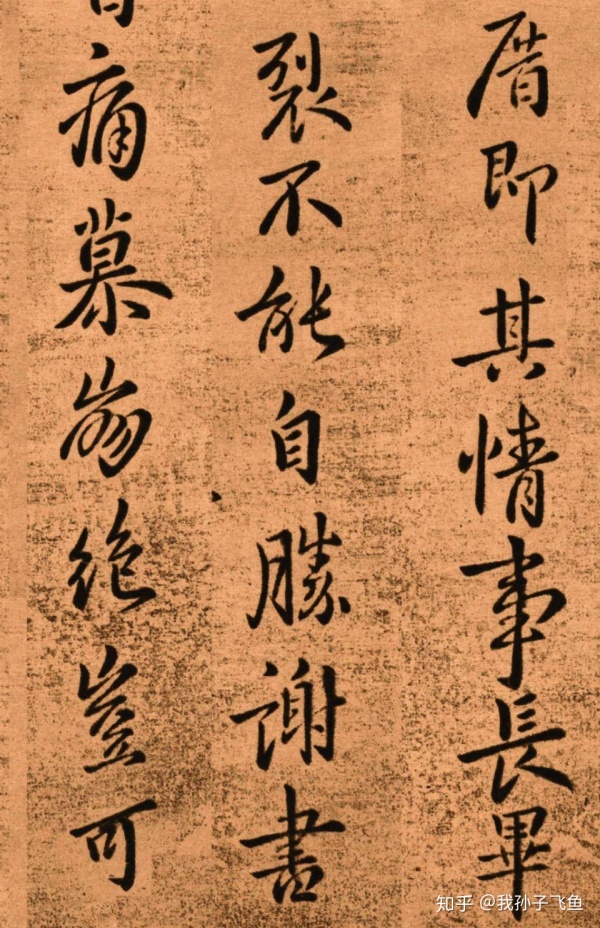 厝即其情事長畢
裂不能自勝謝書
痛慕崩絶豈可
知乎 @我孙子飞鱼